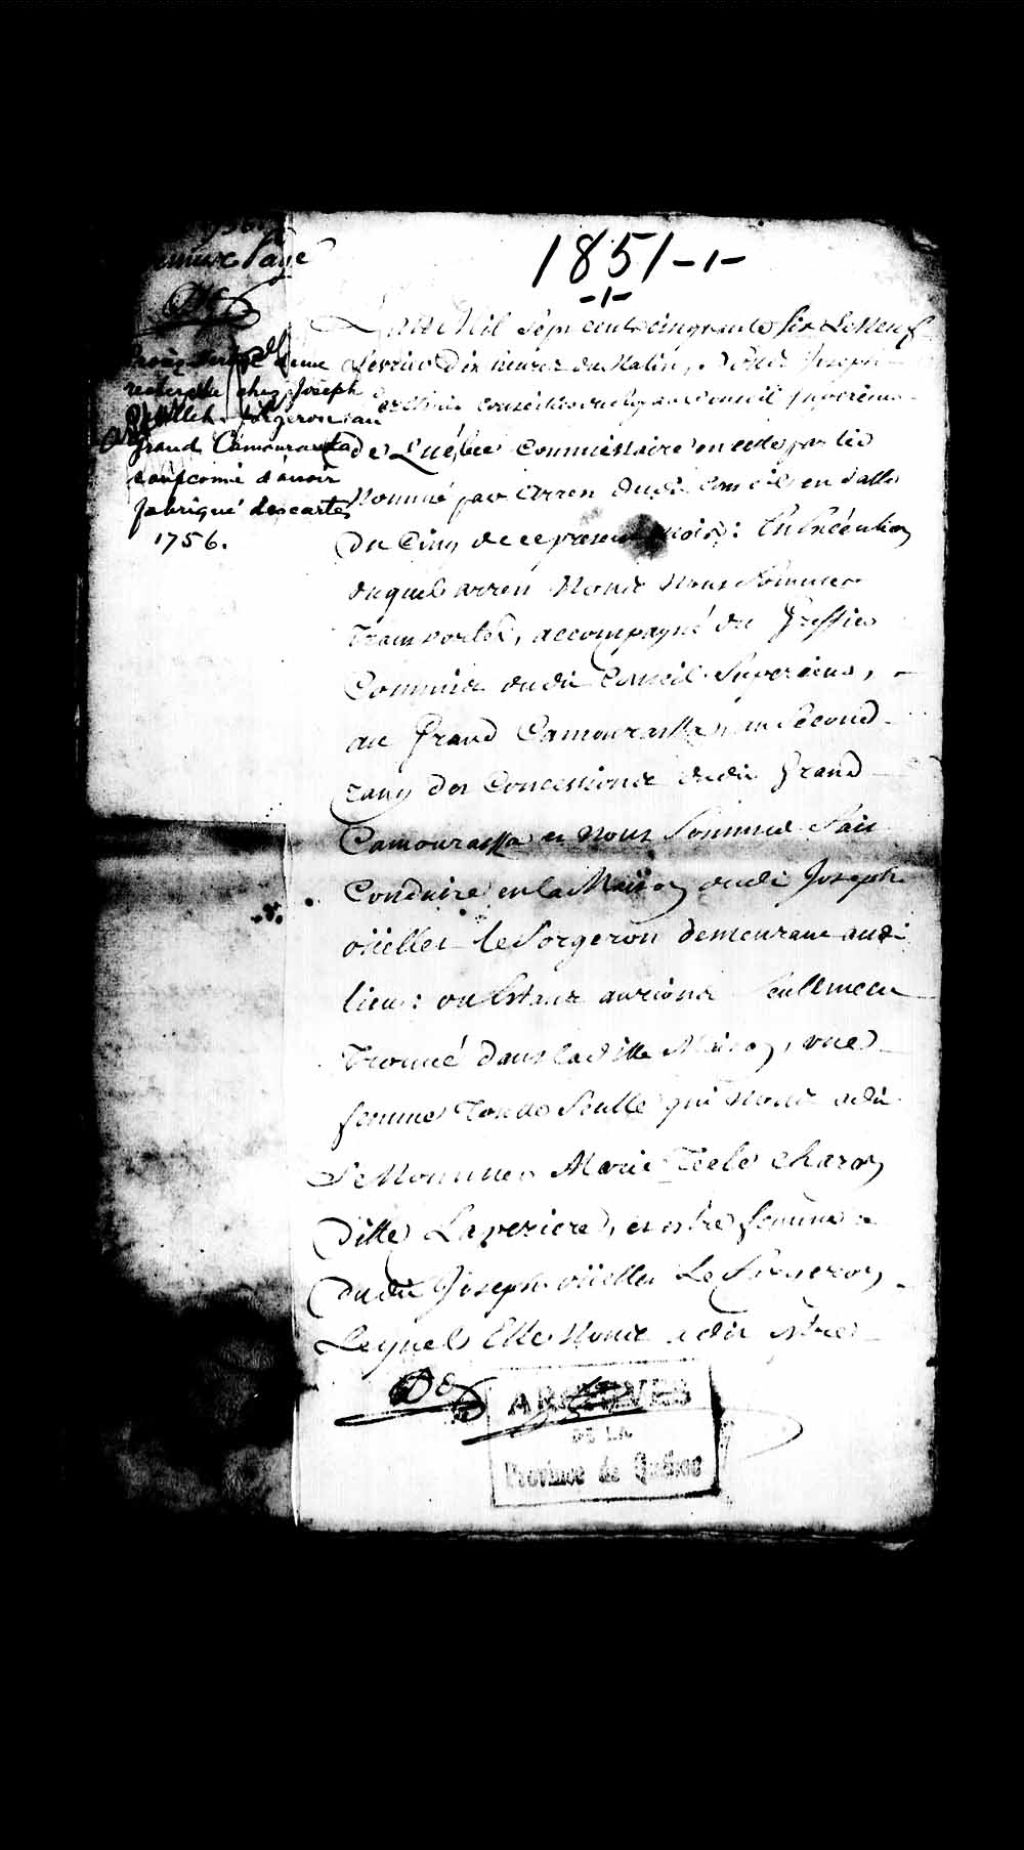 premiere Page
1851-1-
-1-
L'an Mil Sept cent cinquante Six Le Neuf
fevrier dix heures du Matin, Nous Joseph
Conseiller du Roy au Conseil Superieur
de Quebec Commissaire en cette partie
Nommé par Arrest dudit Conseil en datte
Du Cinq de ce present mois : En Execution
duquel arrest Nous Nous Sommes
Transportés, accompagné du Greffier
Commis dudit Conseil Superieur,
au Grand Camouraska, au Second
rang des Concessions dudit Grand
Camouraska et Nous Sommes Fait
Conduire en la Maison dudit Joseph
oüellet le forgeron demeurant audit
lieu : ou Estant aurions Seullement
Trouvé dans laditte Maison, une
femme Toute Seulle qui Nous a dit
Se Nommer Marie Tecle Charon
ditte Laperiere, et estre femme
dudit Joseph oüellet Le Forgeron
Lequel Elle Nous a dit estre
Procès verbal d'une
recherche chez Joseph
Ouellet forgeron au
Grand Camouraska
soupconné d'avoir
fabriqué des cartes
1756.
ARCHIVES
DE LA
Province de Québec